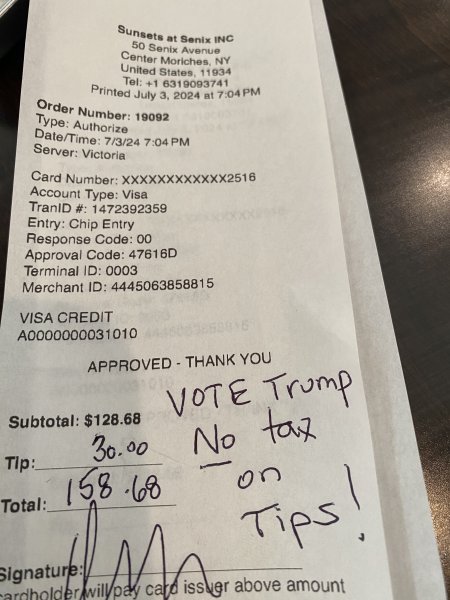 Sunsets at Senix INC
50 Senix Avenue
Center Moriches, NY
United States, 11934
Tel: +1 6319093741
Printed July 3, 2024 at 7:04 PM
Order Number: 19092
Type: Authorize
Date/Time: 7/3/24 7:04 PM
Server: Victoria
Card Number: XXXXXXXXXXXX2516
Account Type: Visa
TranID #: 1472392359
Entry: Chip Entry
Response Code: 00
Approval Code: 47616D
Terminal ID: 0003
Merchant ID: 4445063858815
VISA CREDIT
A0000000031010
APPROVED - THANK YOU
Subtotal: $128.68
Tip: 30.00
Total: 158.68
VOTE Trump
No tax
on
Tips!
Signature:
cardholder will pay card issuer above amount